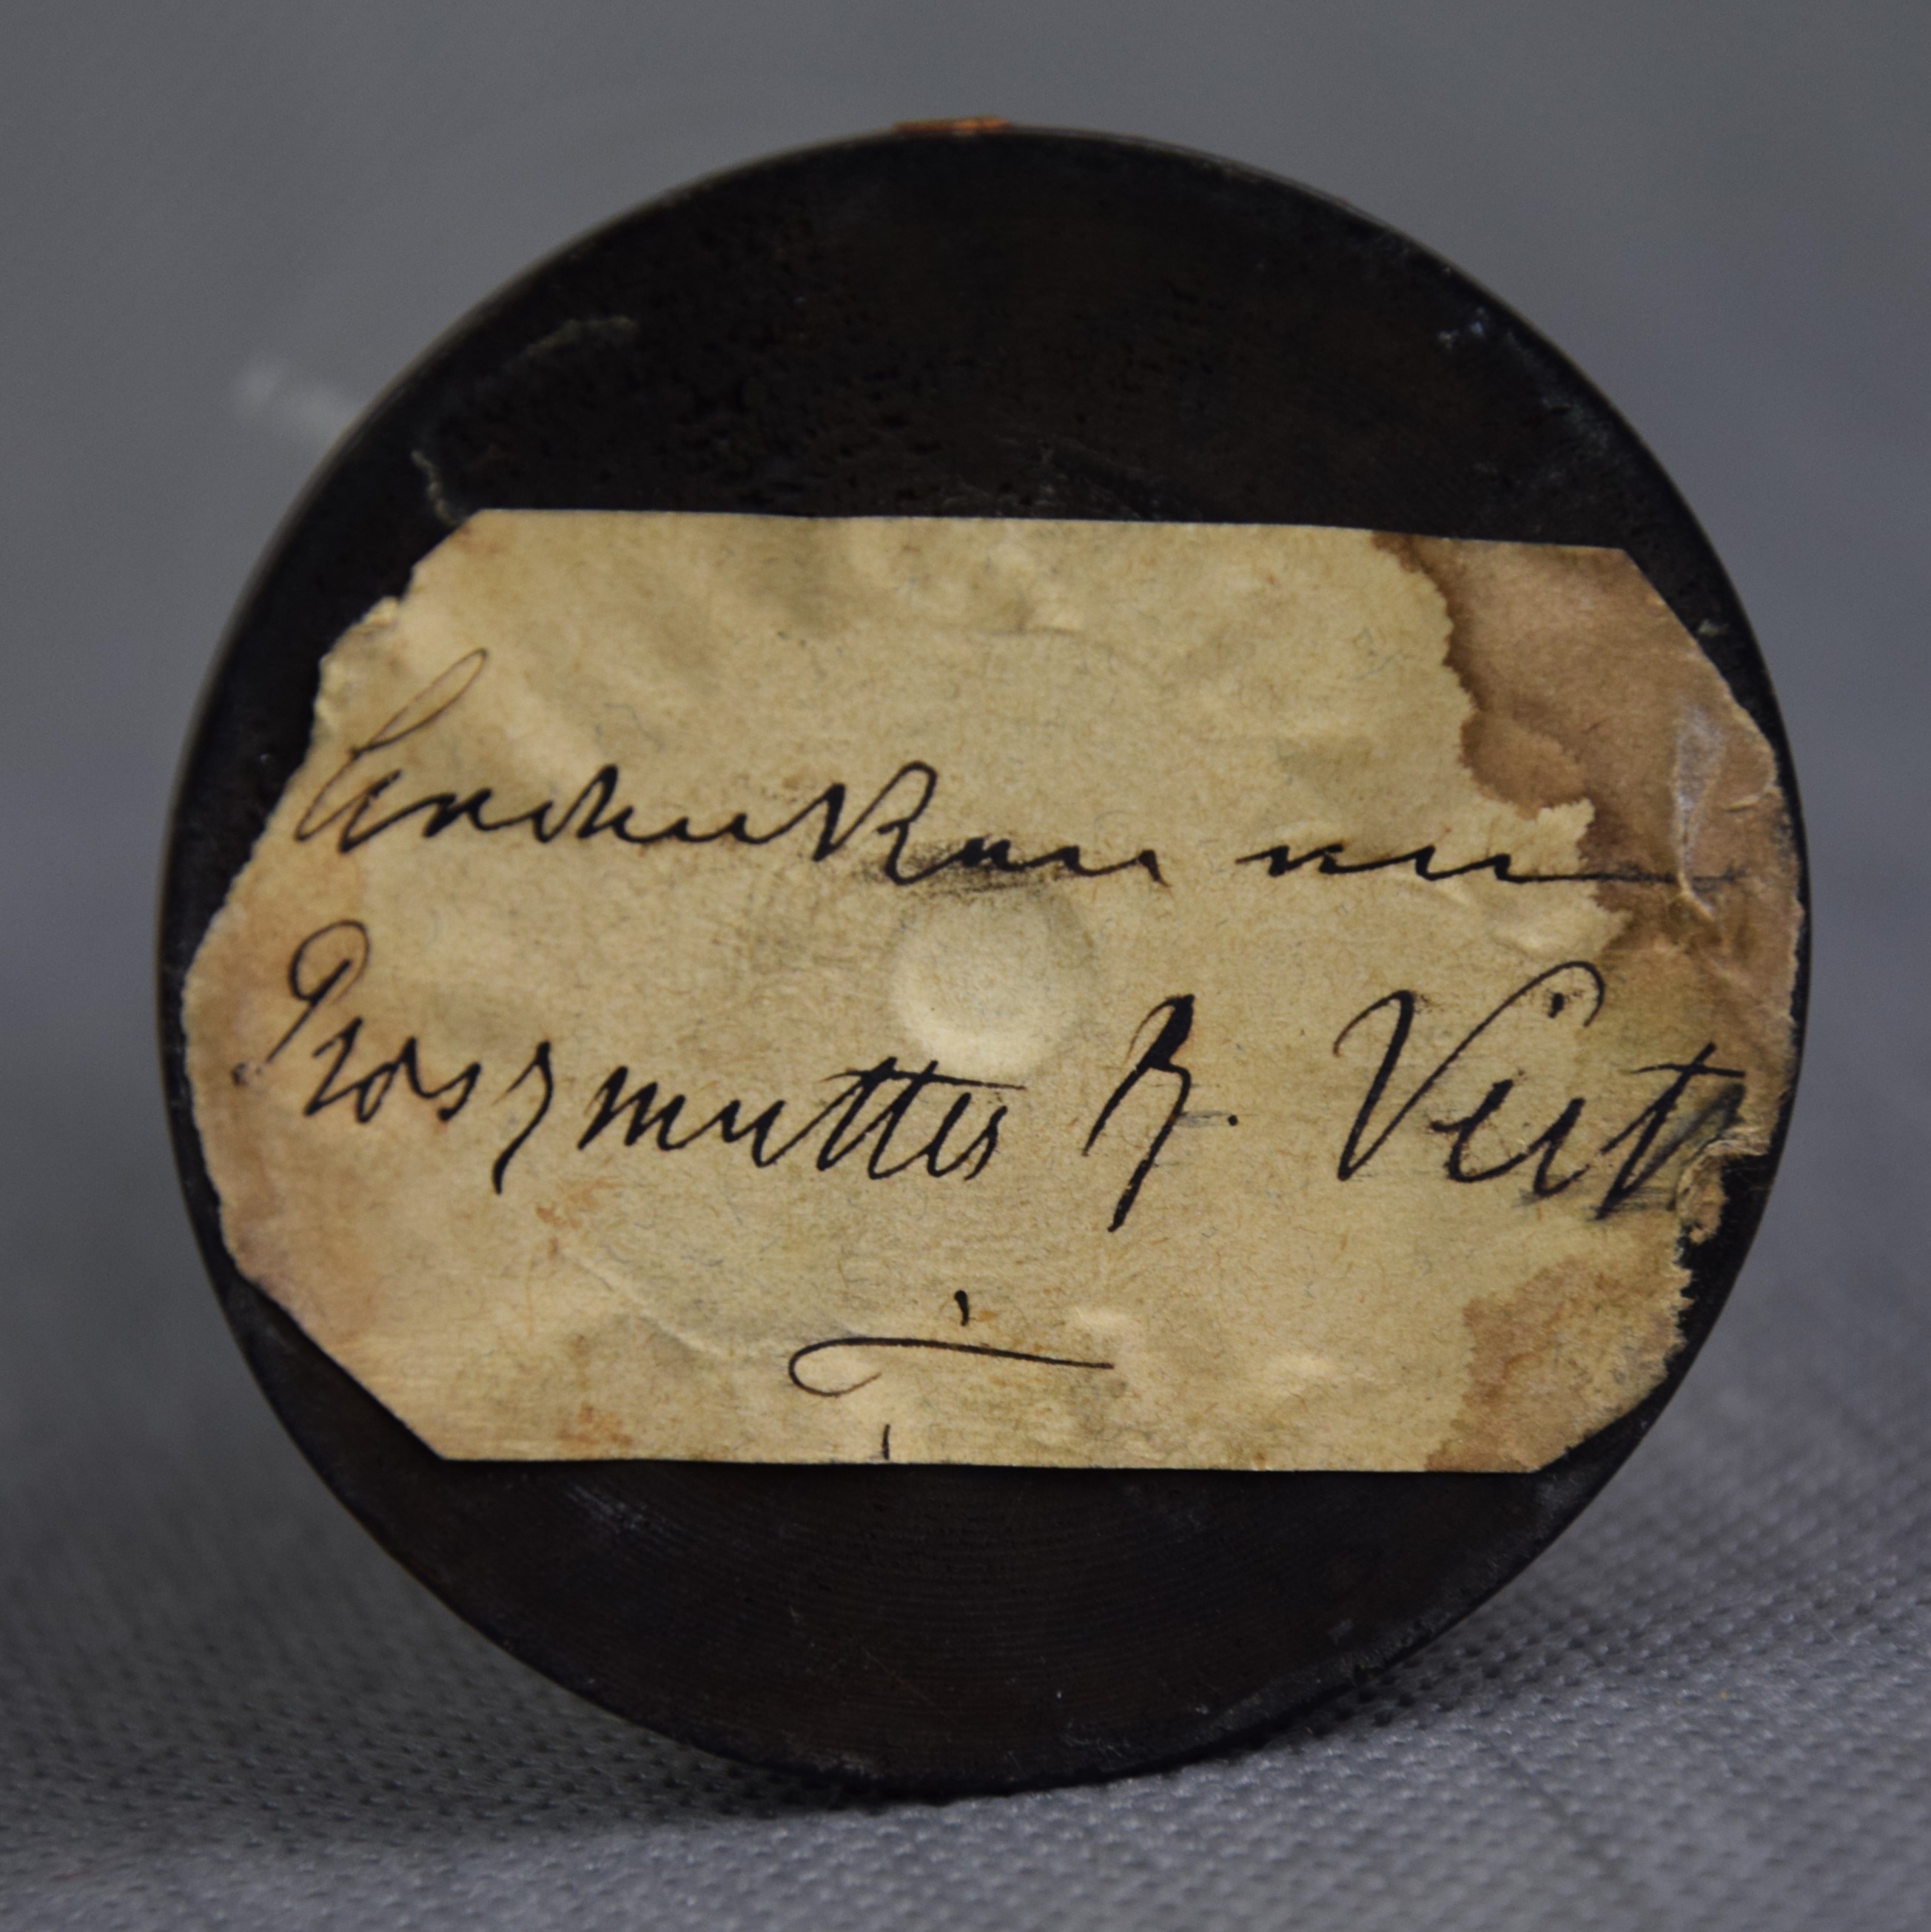 Andenken von
Groszmutter Veith